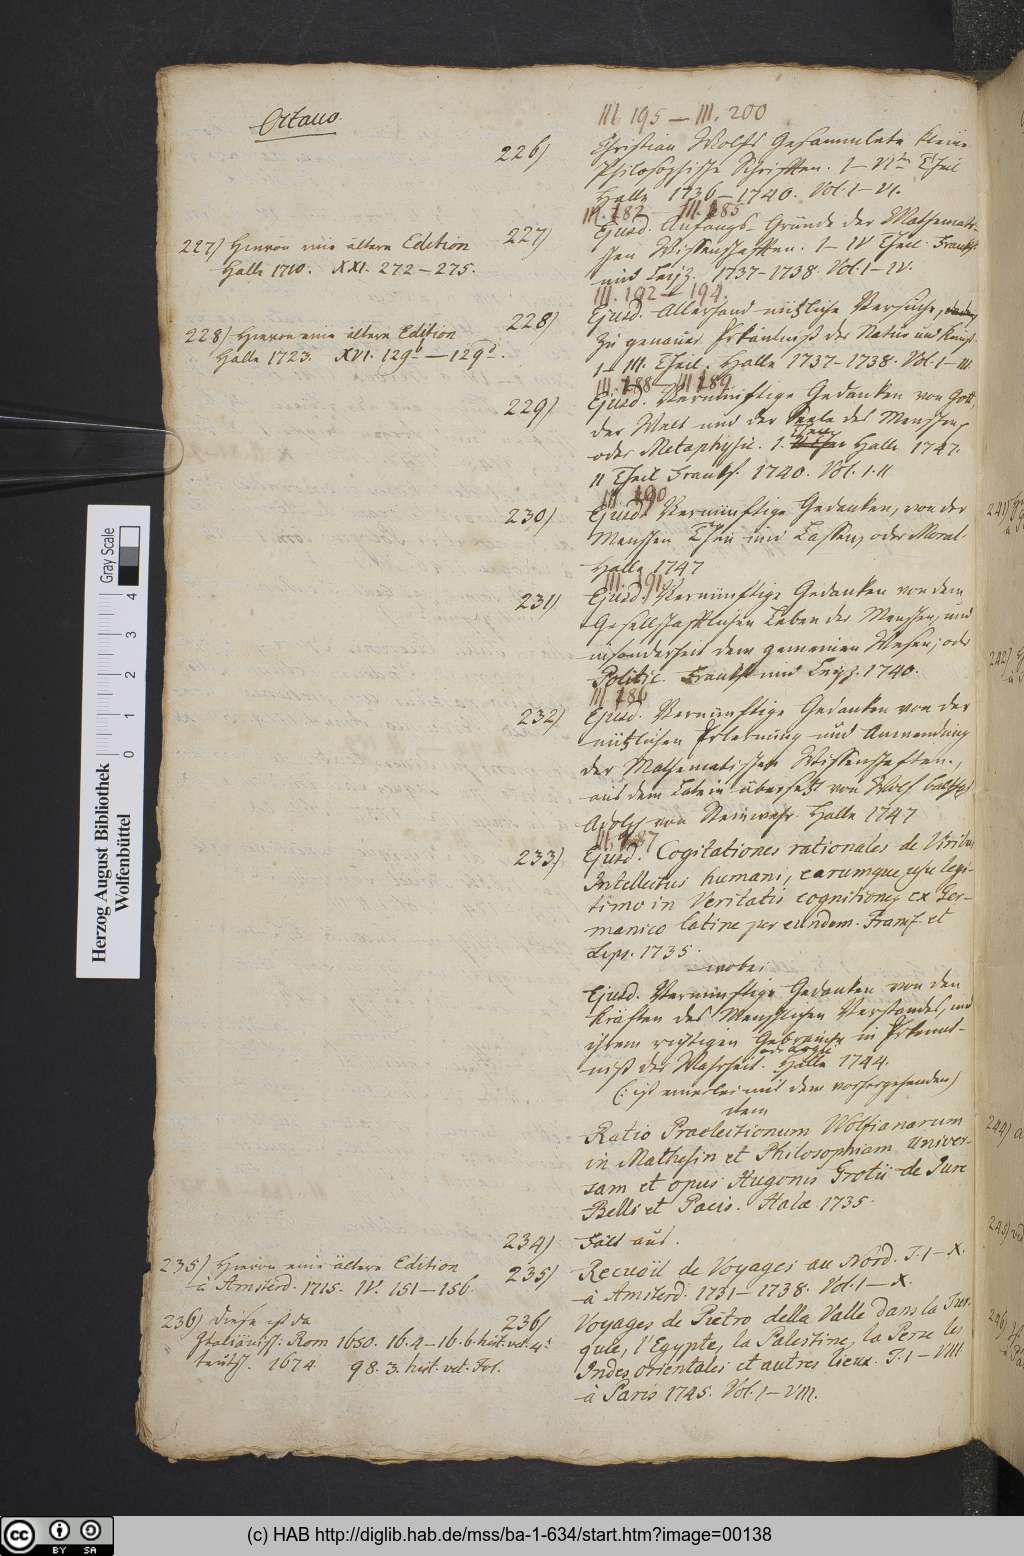 Octavo.
III 195 — III. 200
226) Christian Wolffs Gesammlete kleine
Philosophische Schrifften. I — VIte Theil
Halle 1736 — 1740. Vol. I — VI.
III. 182 III. 185
227) Ejusd. Anfangs-Gründe der Mathemati-
schen Wissenschafften. I — IV Theil. Franckf.
und Leipz. 1737-1738. Vol. I — IV.
227) Hievon eine ältere Edition
Halle 1710. XXI. 272 — 275.
III. 192 — 194.
228) Ejusd. Allerhand nützliche Versuche,
zu genauer Erkäntniß der Natur und Kunst.
I — III. Theil. Halle 1737-1738. Vol. I — III.
228) Hievon eine ältere Edition
Halle 1723. XVI. 129 — 129
III. 188 — III 189
229) Ejusd. Vernünftige Gedanken von Gott,
der Welt und der Seele des Menschen,
oder Metaphysic. I. Theil Halle 1747.
II Theil Franckf. 1740. Vol. I. II
III. 190
230) Ejusd. Vernünftige Gedanken, von der
Menschen Thun und Lassen, oder Moral.
Halle 1747
III. 191.
231) Ejusd. Vernünftige Gedanken von dem
Gesellschafftlichen Leben der Menschen, und
insonderheit dem gemeinen Wesen, oder
Politic. Franckf. und Leipz. 1740.
III 186
232) Ejusd. Vernünftige Gedanken von der
nützlichen Erlernung und Anwendung
der Mathematischen Wissenschaften.,
aus dem Latein übersetzt von
Adolph von Steinwehr. Halle 1747
III. 187
233) Ejusd. Cogitationes rationales de Viribus
Intellectus humani, earumque usu legi-
timo in Veritatis cognitione, ex Ger-
manico latine per eundem. Francf. et
Lips. 1735.
wobei
Ejusd. Vernünftige Gedanken von den
Kräften des Menschlichen Verstandes, und
ihrem richtigen Gebrauche in Erkennt-
niß der Wahrheit. oder Logic Halle 1744.
(: ist einerlei mit dem vorhergehenden)
item
Ratio Praelectionum Wolfianarum
in Mathesin et Philosophiam univer-
sam et opus Hugonis Grotii de Jure
Belli et Pacis. Halae 1735.
234) Fält aus.
235) Recueïl de Voyages au Nord. T. I — X.
à Amsterd. 1731 — 1738. Vol. I — X.
235) Hievon eine ältere Edition
à Amsterd. 1715. IV. 151 — 156.
236) Voyages de Pietro della Valle dans la Tur-
quie, l'Egypte, la Palestine, la Perse les
Indes orientales et autres lieux. T. I — VIII
à Paris 1745. Vol. I — VIII.
236) Diese ist da
Italiänisch: Rom 1650. 16.4 — 16.6. hist. vet. 4º
teutsch. 1674. 98.3. hist. vet. Fol.
241)
242)
244)
245)
246)
Herzog August Bibliothek
Wolfenbüttel
Gray Scale
0 1 2 3 4
cc BY SA
(c) HAB http://diglib.hab.de/mss/ba-1-634/start.htm?image=00138